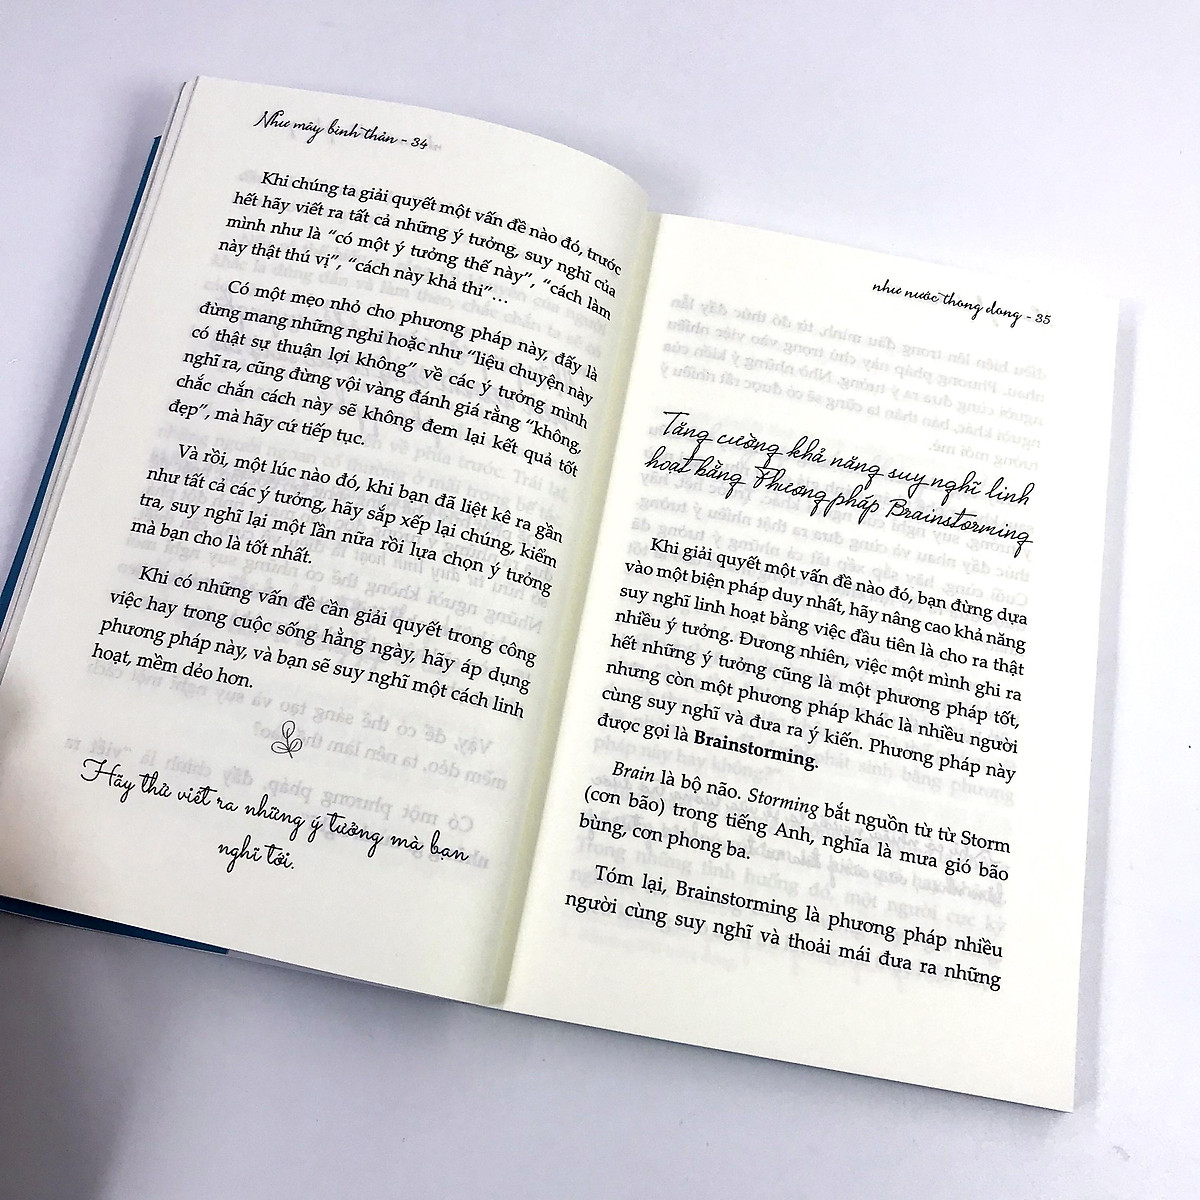 Như mây bình thản - 34
Khi chúng ta giải quyết một vấn đề nào đó, trước
hết hãy viết ra tất cả những ý tưởng, suy nghĩ của
mình như là “có một ý tưởng thế này”, “cách làm
này thật thú vị”, “cách này khả thi”…
Có một mẹo nhỏ cho phương pháp này, đấy là
đừng mang những nghi hoặc như “liệu chuyện này
có thật sự thuận lợi không” về các ý tưởng mình
nghĩ ra, cũng đừng vội vàng đánh giá rằng “không,
chắc chắn cách này sẽ không đem lại kết quả tốt
đẹp”, mà hãy cứ tiếp tục.
Và rồi, một lúc nào đó, khi bạn đã liệt kê ra gần
như tất cả các ý tưởng, hãy sắp xếp lại chúng, kiểm
tra, suy nghĩ lại một lần nữa rồi lựa chọn ý tưởng
mà bạn cho là tốt nhất.
Khi có những vấn đề cần giải quyết trong công
việc hay trong cuộc sống hằng ngày, hãy áp dụng
phương pháp này, và bạn sẽ suy nghĩ một cách linh
hoạt, mềm dẻo hơn.
Hãy thử viết ra những ý tưởng mà bạn
nghĩ tới.
như nước thong dong - 35
Tăng cường khả năng suy nghĩ linh
hoạt bằng Phương pháp Brainstorming
Khi giải quyết một vấn đề nào đó, bạn đừng dựa
vào một biện pháp duy nhất, hãy nâng cao khả năng
suy nghĩ linh hoạt bằng việc đầu tiên là cho ra thật
nhiều ý tưởng. Đương nhiên, việc một mình ghi ra
hết những ý tưởng cũng là một phương pháp tốt,
nhưng còn một phương pháp khác là nhiều người
cùng suy nghĩ và đưa ra ý kiến. Phương pháp này
được gọi là Brainstorming.
Brain là bộ não. Storming bắt nguồn từ từ Storm
(cơn bão) trong tiếng Anh, nghĩa là mưa gió bão
bùng, cơn phong ba.
Tóm lại, Brainstorming là phương pháp nhiều
người cùng suy nghĩ và thoải mái đưa ra những